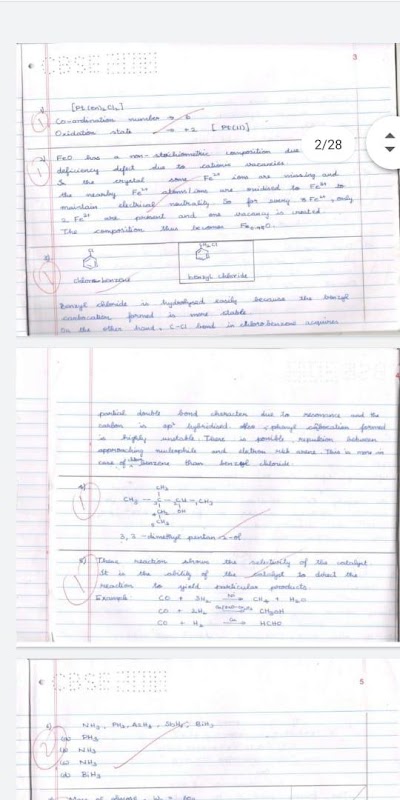 2/28
CBSE
3
1)
[Pt(en)2Cl2]
Co-ordination number → 6
Oxidation state → +2 [Pt(II)]
2)
FeO has a non-stoichiometric composition due
deficiency defect due to cation vacancies
So the crystal some Fe2+ ions are missing and
the nearby Fe2+ atoms/ions are oxidised to Fe3+ to
maintain electrical neutrality. So for every 3 Fe2+, only
2 Fe3+ are present and one vacancy is created
The composition thus becomes
3)
Cl
CH2Cl
chlorobenzene
benzyl chloride
Benzyl chloride is hydrolysed easily because the benzyl
carbocation formed is more stable.
On the other hand, C-Cl bond in chlorobenzene acquires
partial double bond character due to resonance and the
carbon is sp2 hybridised. Also phenyl carbocation formed
is highly unstable. There is possible repulsion between
approaching nucleophile and electron rich arene. This is more in
case of benzene than benzyl chloride
4)
CH3
CH3 - C - CH - CH3
CH2 OH
CH3
3, 3-dimethyl pentan-2-ol
5)
These reaction shows the selectivity of the catalyst
It is the ability of the catalyst to direct the
reaction to yield particular products
Example: CO + 3H2 Ni → CH4 + H2O
CO + 2H2 → CH3OH
CO + H2 Cu → HCHO
CBSE
5
6)
NH3, PH3, AsH3, SbH3, BiH3
(a) PH3
(b) NH3
(c) NH3
(d) BiH3
Mass of glucose, W2 =